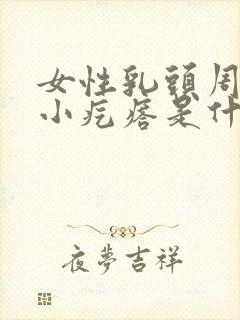 女性乳頭周
小疙瘩是什
夜夢吉祥